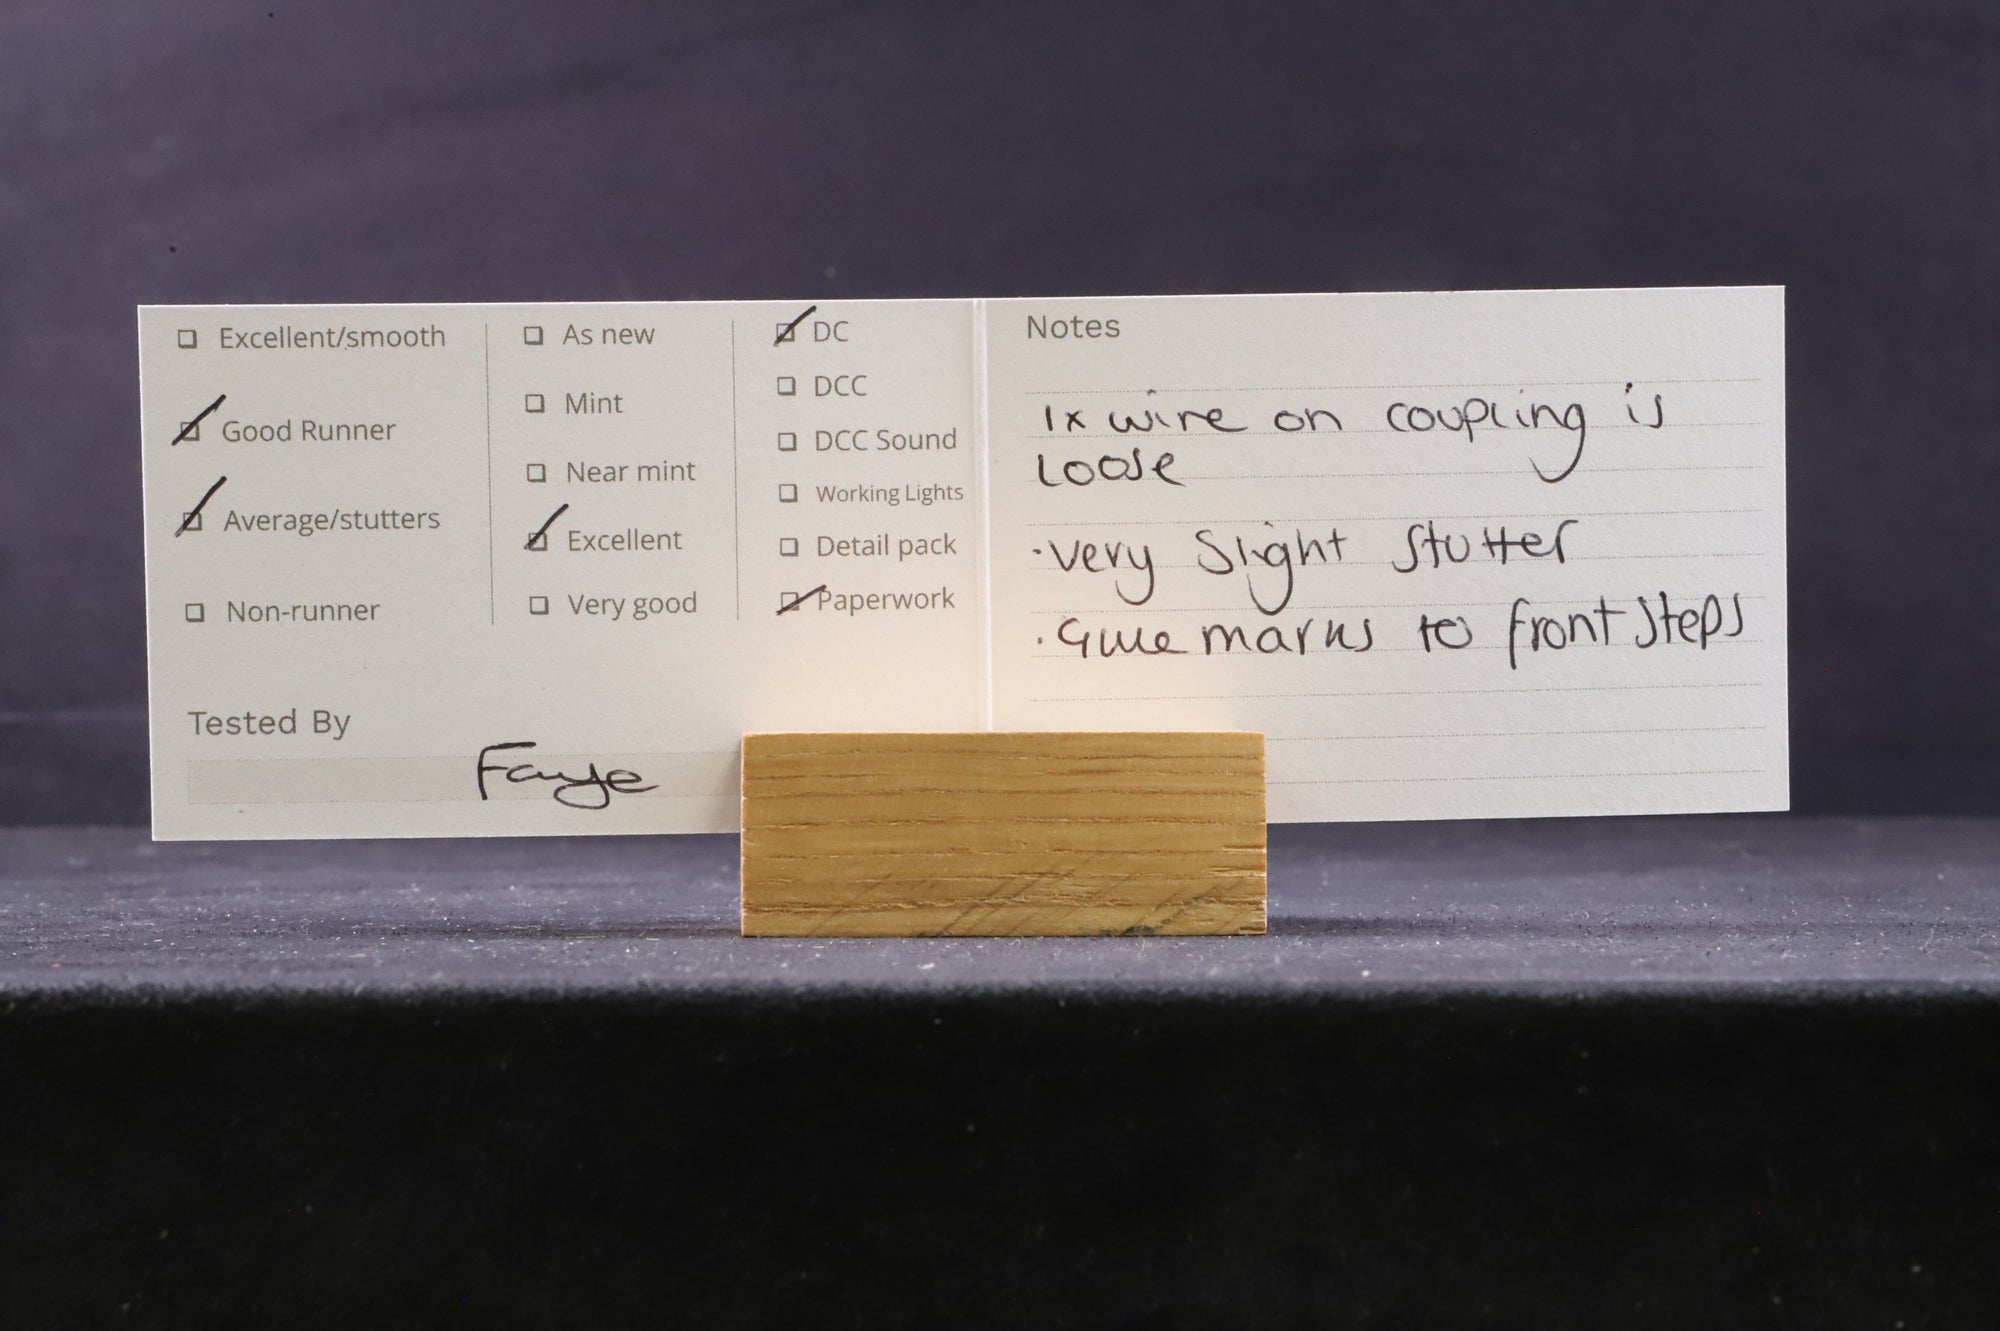 Excellent/smooth
Good Runner
Average/stutters
Non-runner
As new
Mint
Near mint
Excellent
Very good
DC
DCC
DCC Sound
Working Lights
Detail pack
Paperwork
Tested By
Faye
Notes
1x wire on coupling is
loose
·very slight stutter
·Glue marks to front steps